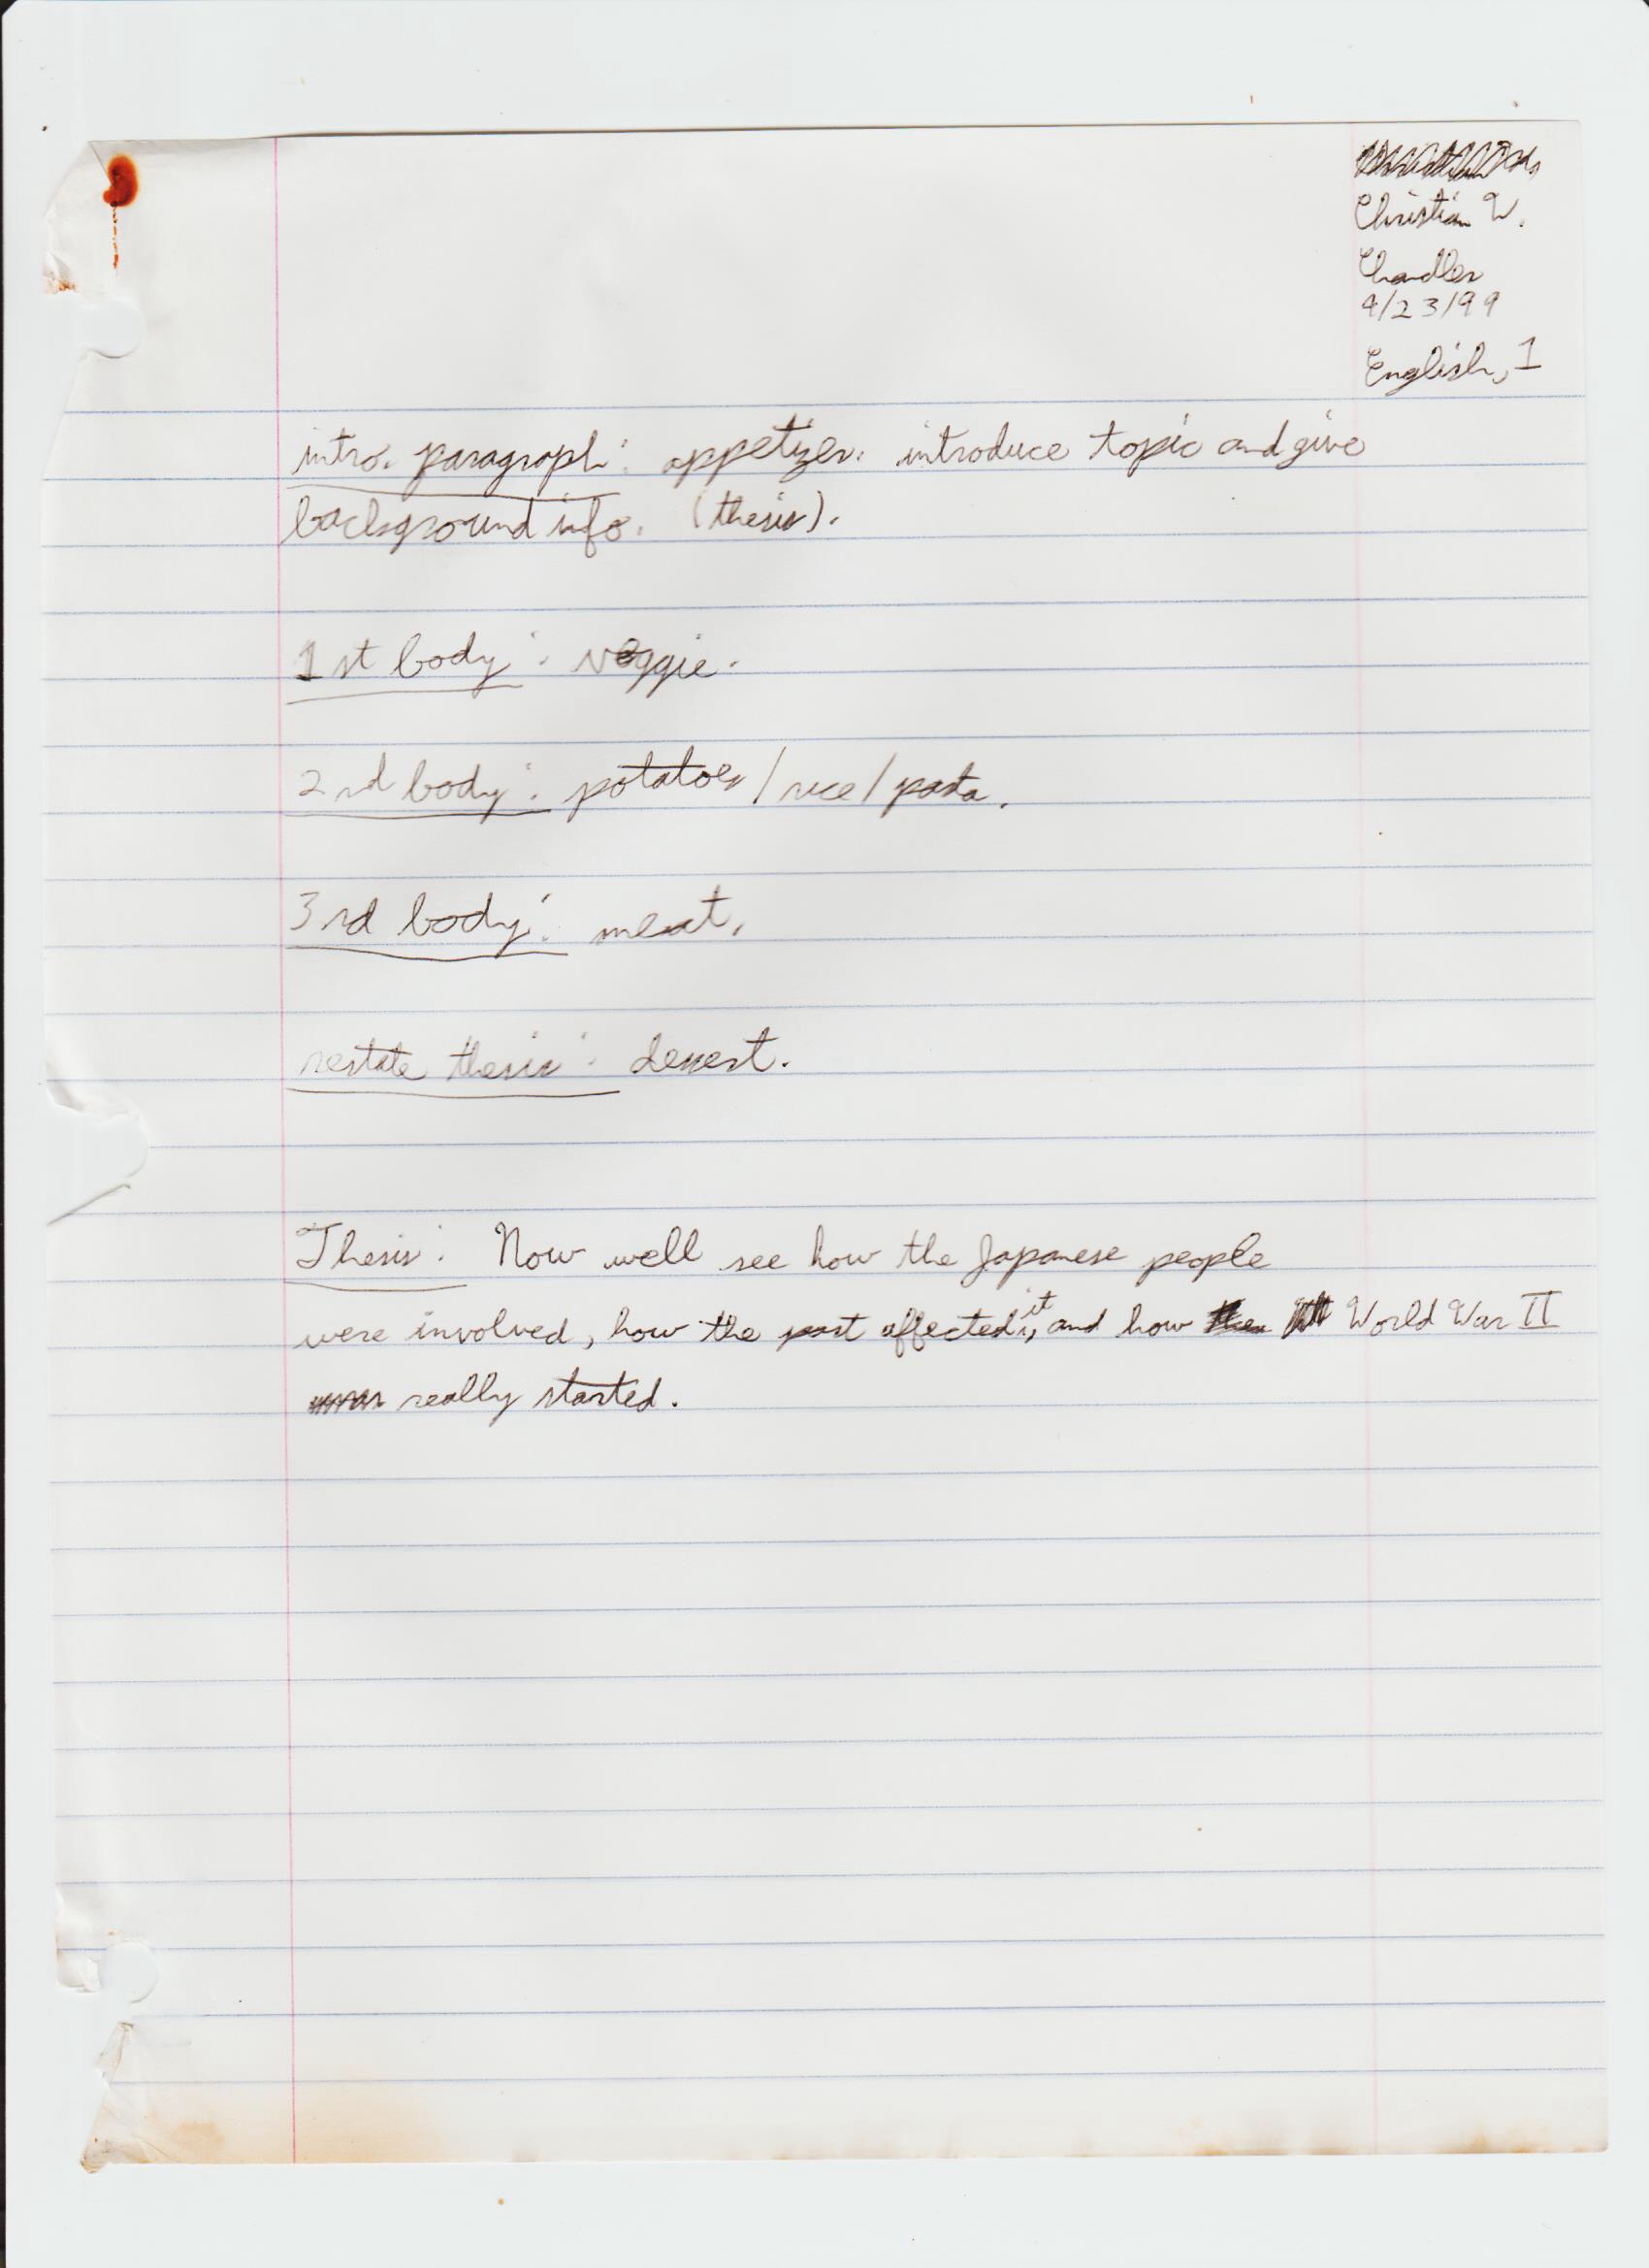 Christian W.
Chandler
4/23/99
English, 1
intro. paragraph: appetizer: introduce topic and give
background info. (thesis).
1st body: veggie.
2nd body: potatoes/rice/pasta.
3rd body: meat.
restate thesis: dessert.
Thesis: Now well see how the Japanese people
were involved, how the past affected it, and how World War II
really started.